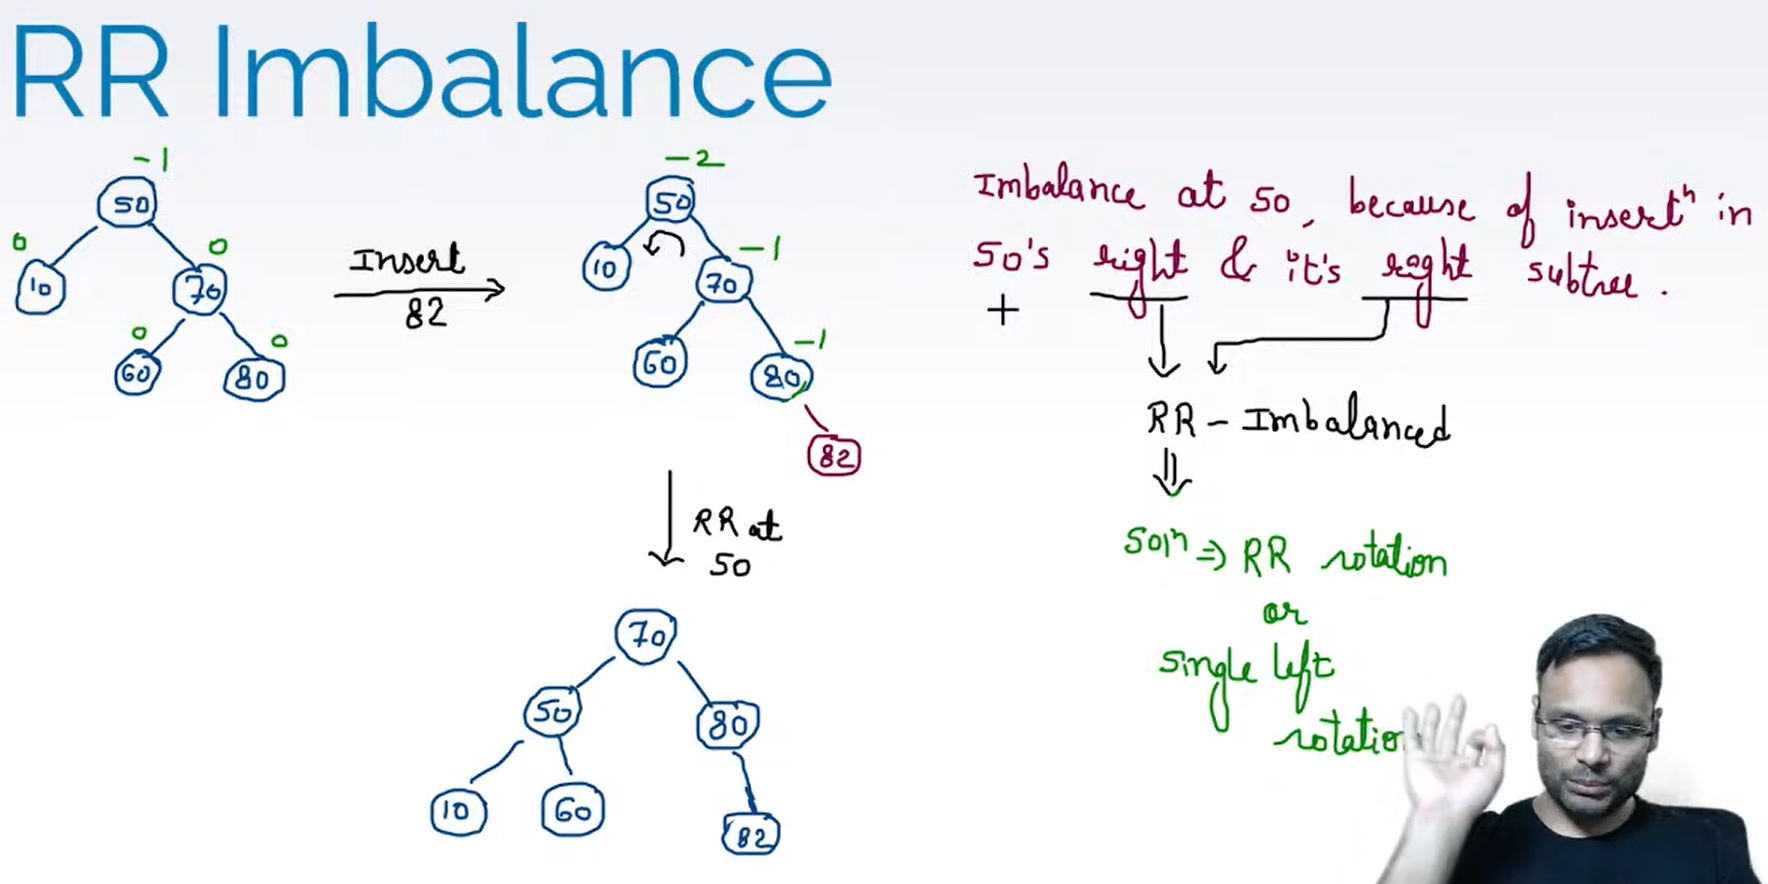 RR Imbalance
-1
50
0
0
10
70
0
0
60
80
Insert
82
-2
50
-1
10
70
-1
60
80
82
RR at
50
70
50
80
10
60
82
Imbalance at 50, because of insertⁿ in
50's right & it's right subtree.
+
RR - Imbalanced
Solⁿ ⇒ RR rotation
or
Single left
rotation